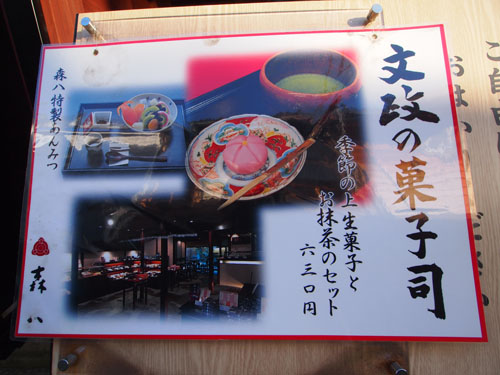 文政の菓子司
季節の上生菓子と
お抹茶のセット
六三〇円
森八特製あんみつ
森八